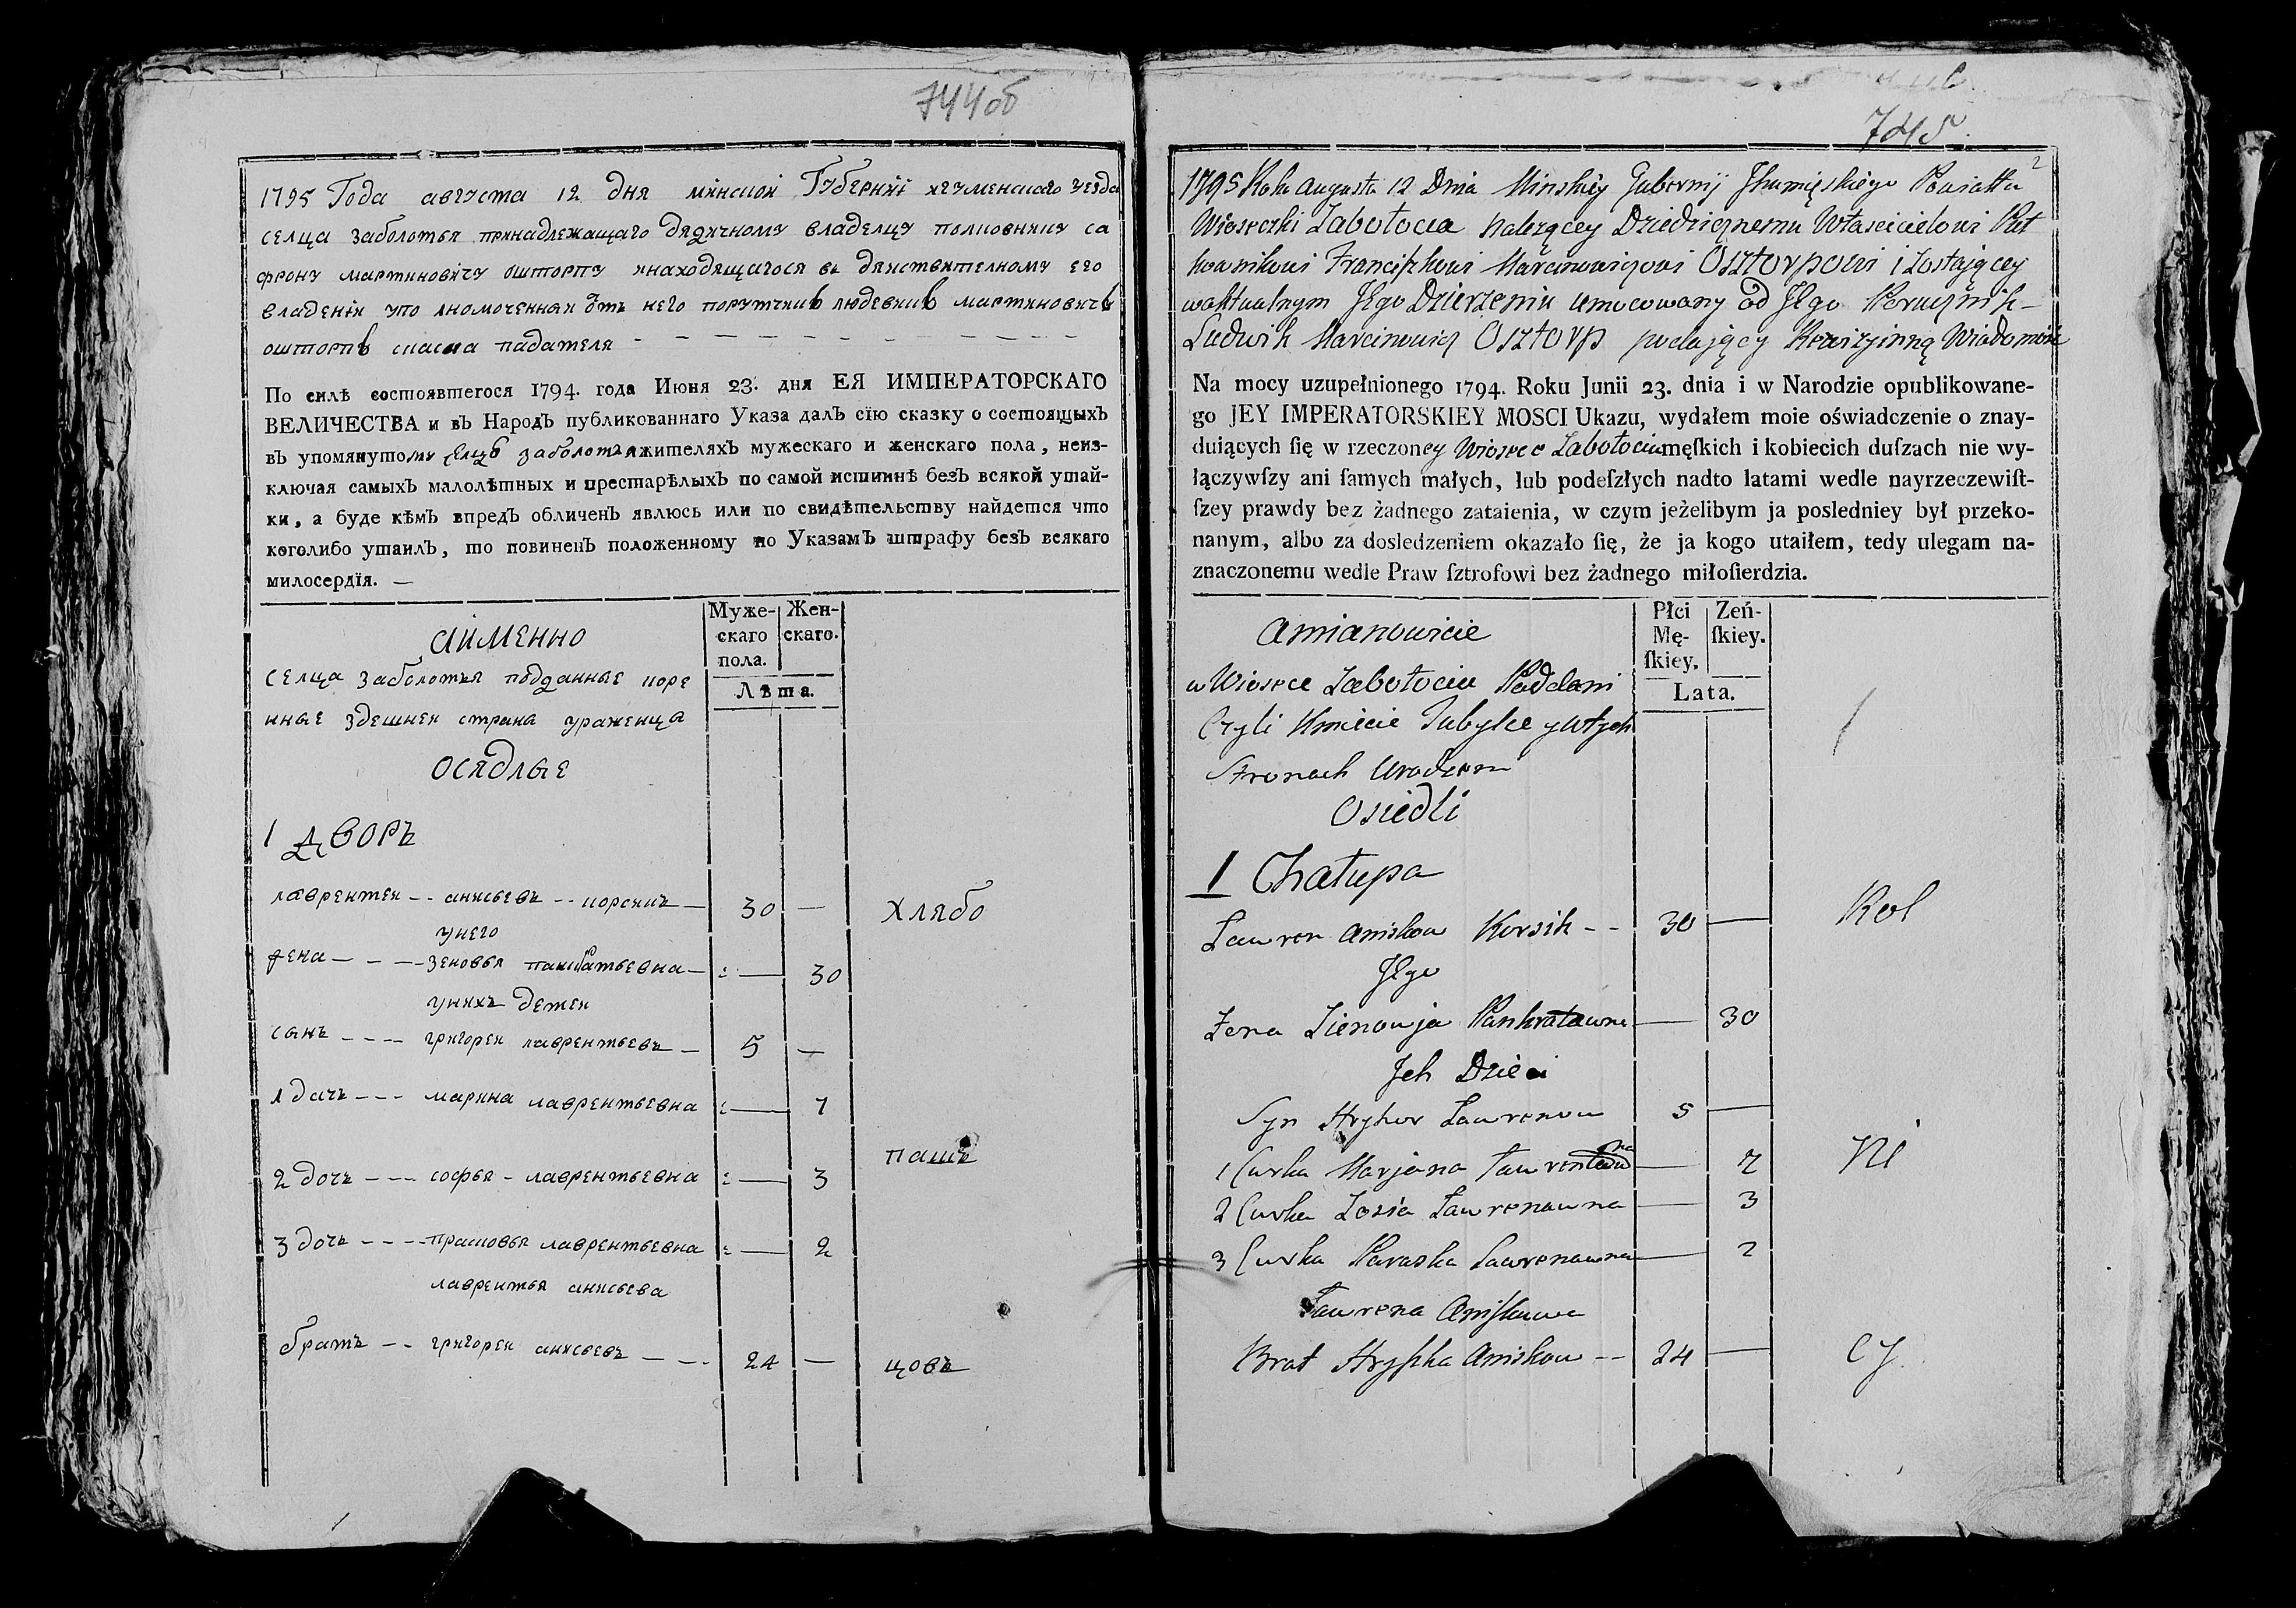 744об
1795 Года августа 12 дня минской Губернии игуменского уезда
селца заболотья принадлежащаго дядичному владелцу полковнику са
фрону мартиновичу ошторпу инаходящагося вь дянствителному его
владении упо лномоченнаи отъ него порутчикъ людевикъ мартиновичъ
ошторпъ падателя
По силѣ состоявшегося 1794. года Июня 23. дня ЕЯ ИМПЕРАТОРСКАГО
ВЕЛИЧЕСТВА и въ Народъ публикованнаго Указа далъ сїю сказку о состоящыхъ
въ упомянутомъ селцѣ заболотья жителяхъ мужескаго и женскаго пола, неиз-
ключая самыхъ малолѣтных и престарѣлыхъ по самой истиннѣ безъ всякой утай-
ки, а буде кѣмъ впредъ обличенъ явлюсь или по свидѣтельству найдется что
коголибо утаилъ, то повиненъ положенному по Указамъ штрафу безъ всякаго
милосердїя. —
аимено
Муже-скаго пола. Жен-скаго.
Лѣта.
селца заболотья подданные коре
нные здешнеи страна ураженца
осядлые
1 дворъ
лаврентеи -- анисьевъ -- корсикъ — 30 — хлябо
у него
жена — — — зеновья панкратьевна — : — 30
унихъ детеи
сынъ ---- григореи лаврентьевъ — 5 —
1 дочь --- марина лаврентьевна : — 7
пашъ
2 дочь --- софья - лаврентьевна : — 3
3 дочь ---- прасковья лаврентьевна : — 2
лаврентья анисьева
братъ -- григореи анисьевъ --- 24 — цовъ
745
2
1795 Roku Augusta 12 Dnia Minskiey Gubernij Jhumięskiego Powiattu
Wioseczki Zabołocia nalezącey Dziedzicznemu Własciciełowi Puł
kownikowi Franciszkowi Marcinowiczowi Osztorpowi i Zostającey
waktualnym Jego Dzierzeniu umocowany od Jego Poruznik —
Ludwik Marcinowicz Osztorp podający Rewizyinną Wiadomość
Na mocy uzupełnionego 1794. Roku Junii 23. dnia i w Narodzie opublikowane-
go JEY IMPERATORSKIEY MOSCI Ukazu, wydałem moie oświadczenie o znay-
duiących ſię w rzeczoney Wiosce Zabołociu męſkich i kobiecich duſzach nie wy-
łączywſzy ani ſamych małych, lub podeſzłych nadto latami wedle nayrzeczewiſt-
ſzey prawdy bez żadnego zataienia, w czym jeżelibym ja posledniey był przeko-
nanym, albo za dosledzeniem okazało ſię, że ja kogo utaiłem, tedy ulegam na-
znaczonemu wedle Praw ſztrofowi bez żadnego miłoſierdzia.
Amianowicie
Płci Mę-ſkiey. Zeń-ſkiey.
Lata.
w Wiosce Zabołociu Poddani
Czyli Kmiecie Tubylce y wtych
Stronach Urodzeni
Osiedli
1 Chałupa
Ławren Aniskow Korsik -- 30 — Rol
Jego
Zona Zienowja Pankratowna — 30
Jch Dzieci
Syn Hryhor Ławrenow 5 —
1 Curka Marjana Ławrenowna — 7 Ni
2 Curka Zosia Ławrenowna — 3
3 Curka Paraska Ławrenowna — 2
Ławrena Aniskowa
Brat Hryszka Aniskow -- 24 — cy